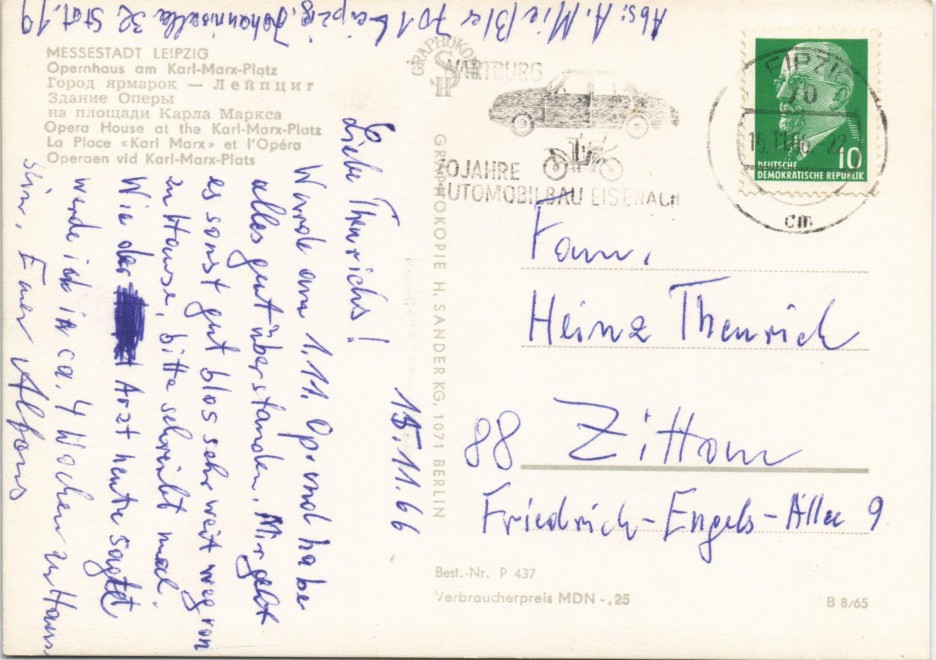 Abs: A. Mießler 701 Leipzig, Johannisallee 32 Stat. 19
MESSESTADT LEIPZIG
Opernhaus am Karl-Marx-Platz
Город ярмарок — Лейпциг
Здание Оперы
на площади Карла Маркса
Opera House at the Karl-Marx-Platz
La Place «Karl Marx» et l'Opéra
Operaen vid Karl-Marx-Plats
15.11.66
Liebe Thenrichs!
Wurde am 1.11. Op. und habe
alles gut überstanden. Mir geht
es sonst gut blos sehr weit weg von
zu Hause, bitte schreibt mal.
Wie der Arzt heute sagte
werde ich in ca. 4 Wochen zu Hause
sein. Euer Alfons
GRAPHOKOPIE H. SANDER KG, 1071 BERLIN
GRAPHOKOPIE
HS
WARTBURG
0 JAHRE
AUTOMOBILBAU EISENACH
LEIPZIG
70
15.11.66
cm
10
DEUTSCHE
DEMOKRATISCHE REPUBLIK
Fam.
Heinz Thenrich
88 Zittau
Friedrich-Engels-Allee 9
Best.-Nr. P 437
Verbraucherpreis MDN -,25
B 8/65